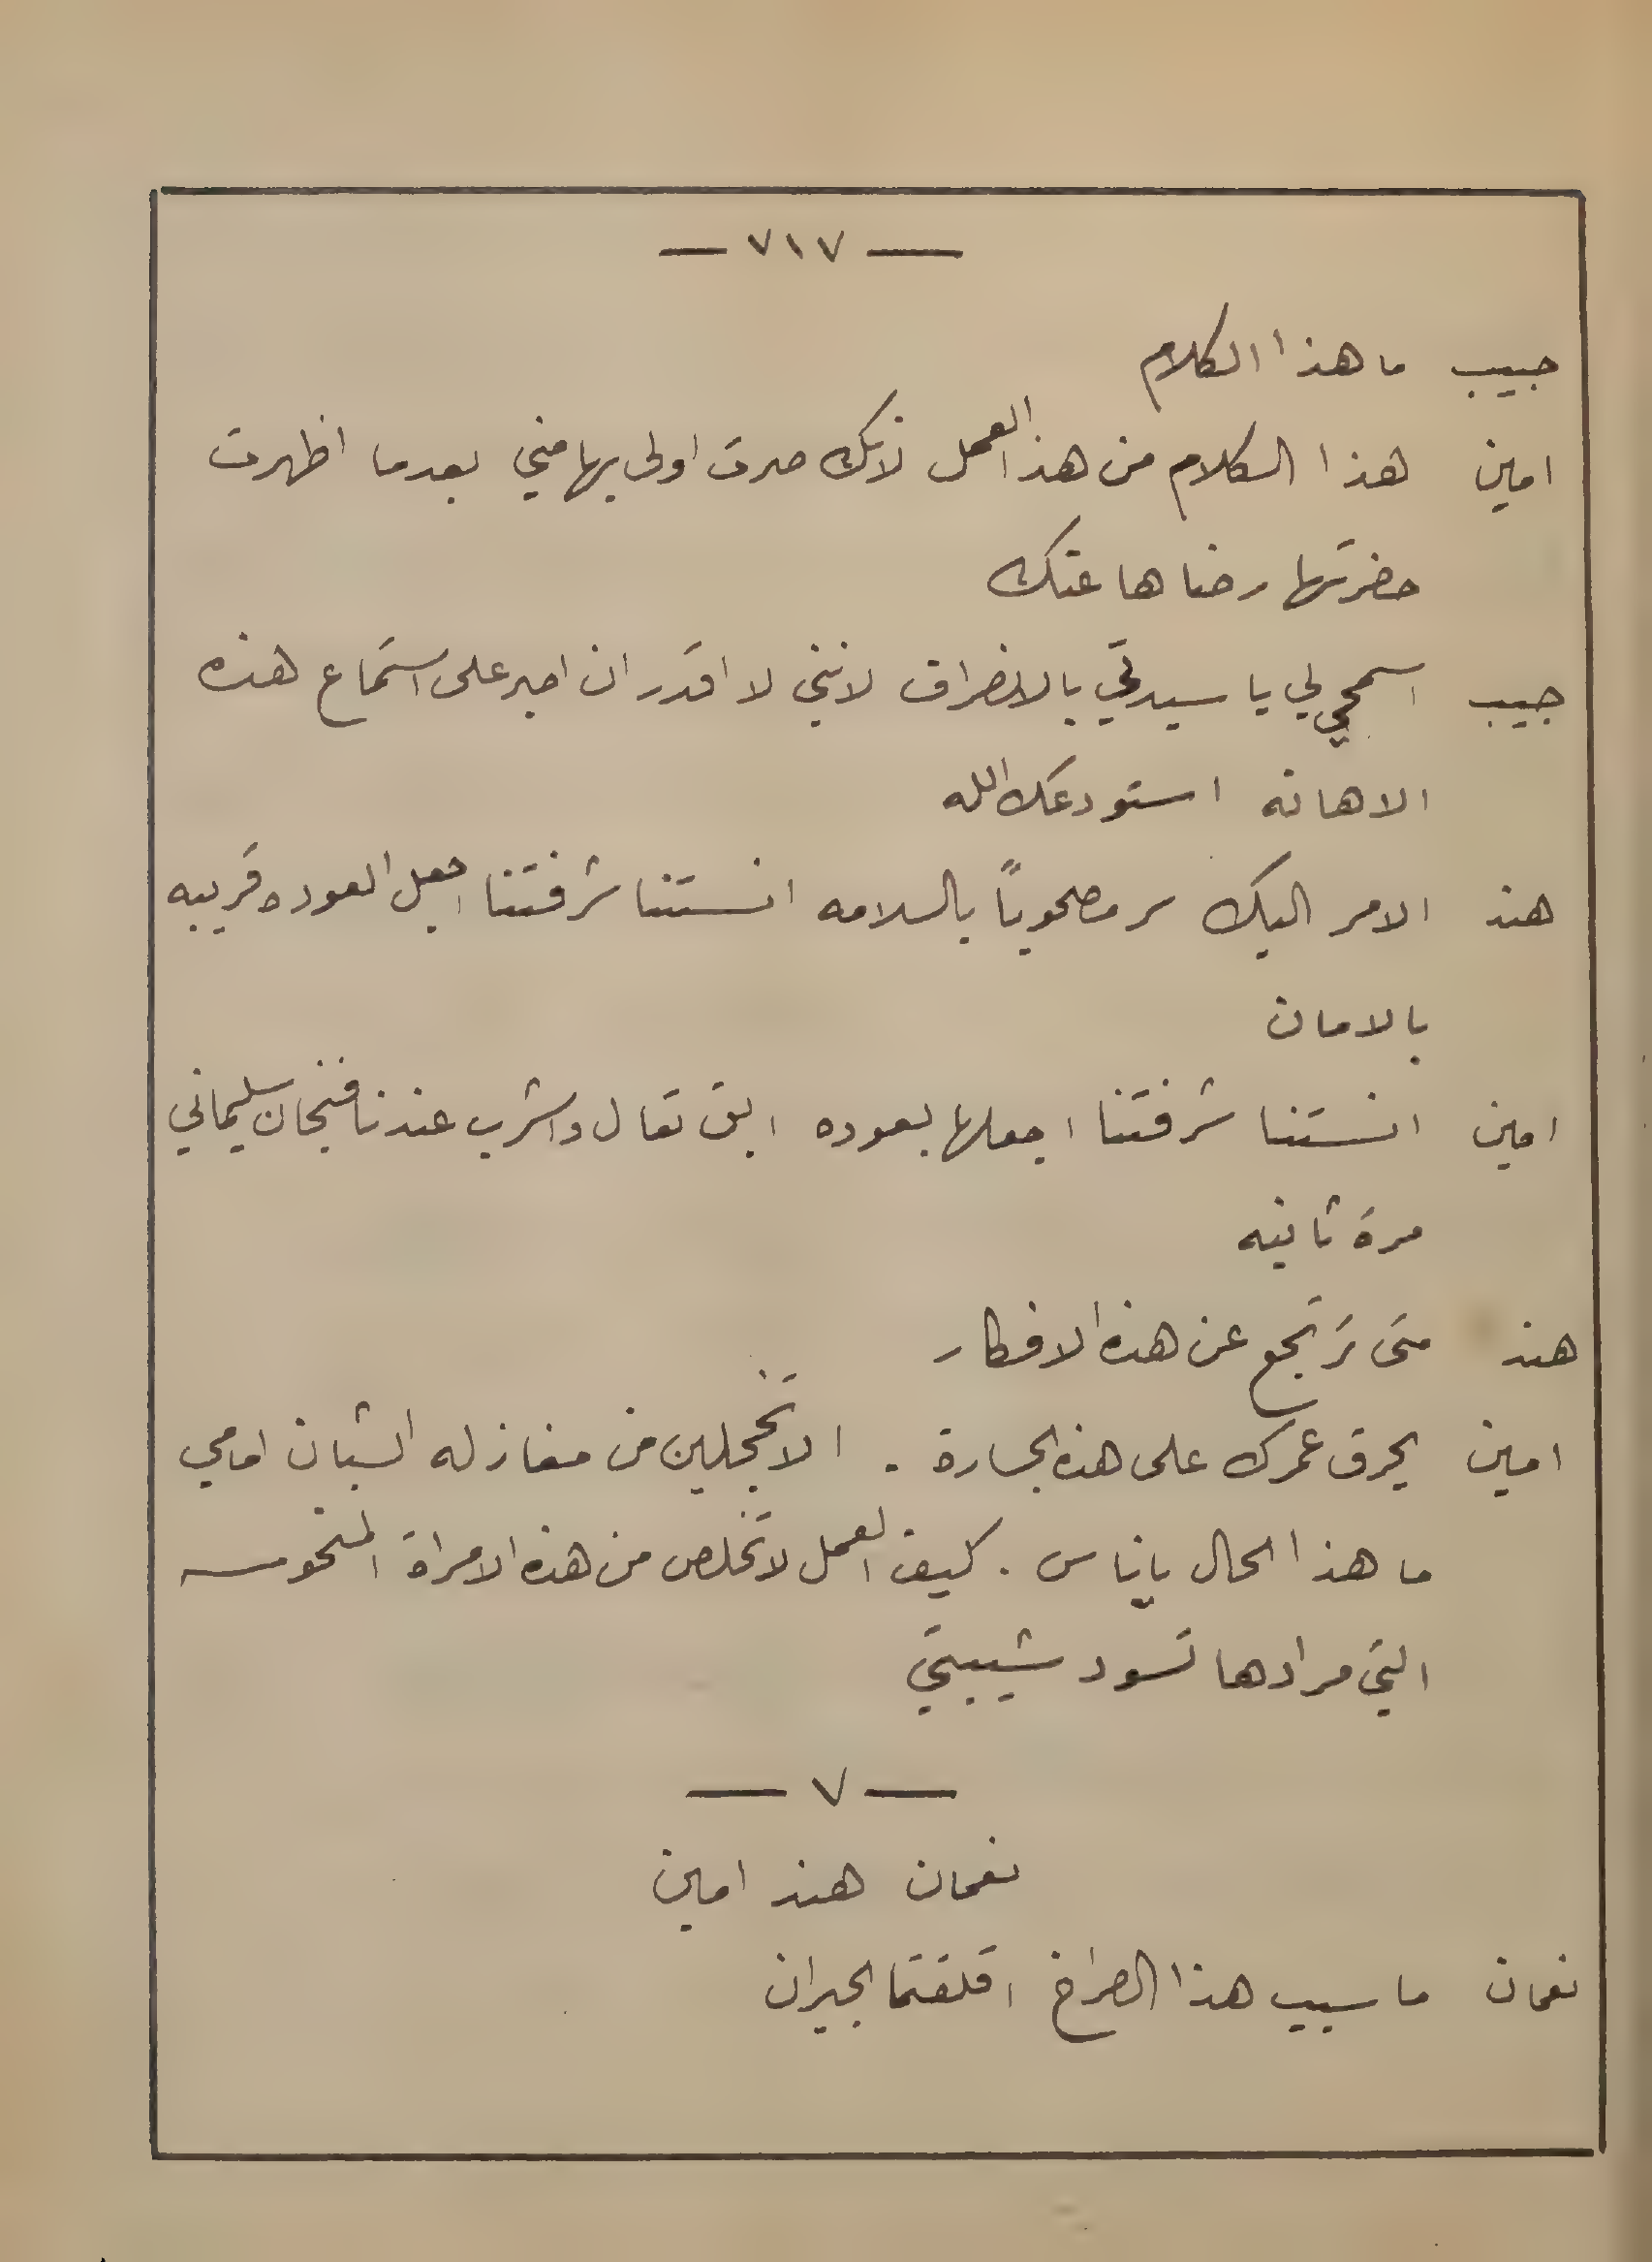 — ٧١٧ —
حبيب ما هذا الكلام
امين هذا الكلام من هذا العمل لانك صرت اولى بها مني بعدما اظهرت
حضرتها رضاها عنك
حبيب اسمحي لي يا سيدتي بالانصراف لانني لا اقدر ان اصبر على استماع هذه
الاهانه استودعك الله
هند الامر اليك سر مصحوباً بالسلامه انستنا شرفتنا اجعل العوده قريبه
بالامان
امين انستنا شرفتنا اجعلها بعوده ابق تعال واشرب عندنا فنجان سليماني
مرة ثانيه
هند متى ترتجع عن هذه الافكار
امين يحرق عمرك على هذه الجسارة . الا تخجلين من مغازله الشبان امامي
ما هذا الحال ياناس . كيف العمل لاتخلص من هذه الامراة المنحوسه
التي مرادها تسود شيبتي
— ٧ —
نعمان هند امين
نعمان ما سبب هذا الصراخ اقلقتما الجيران